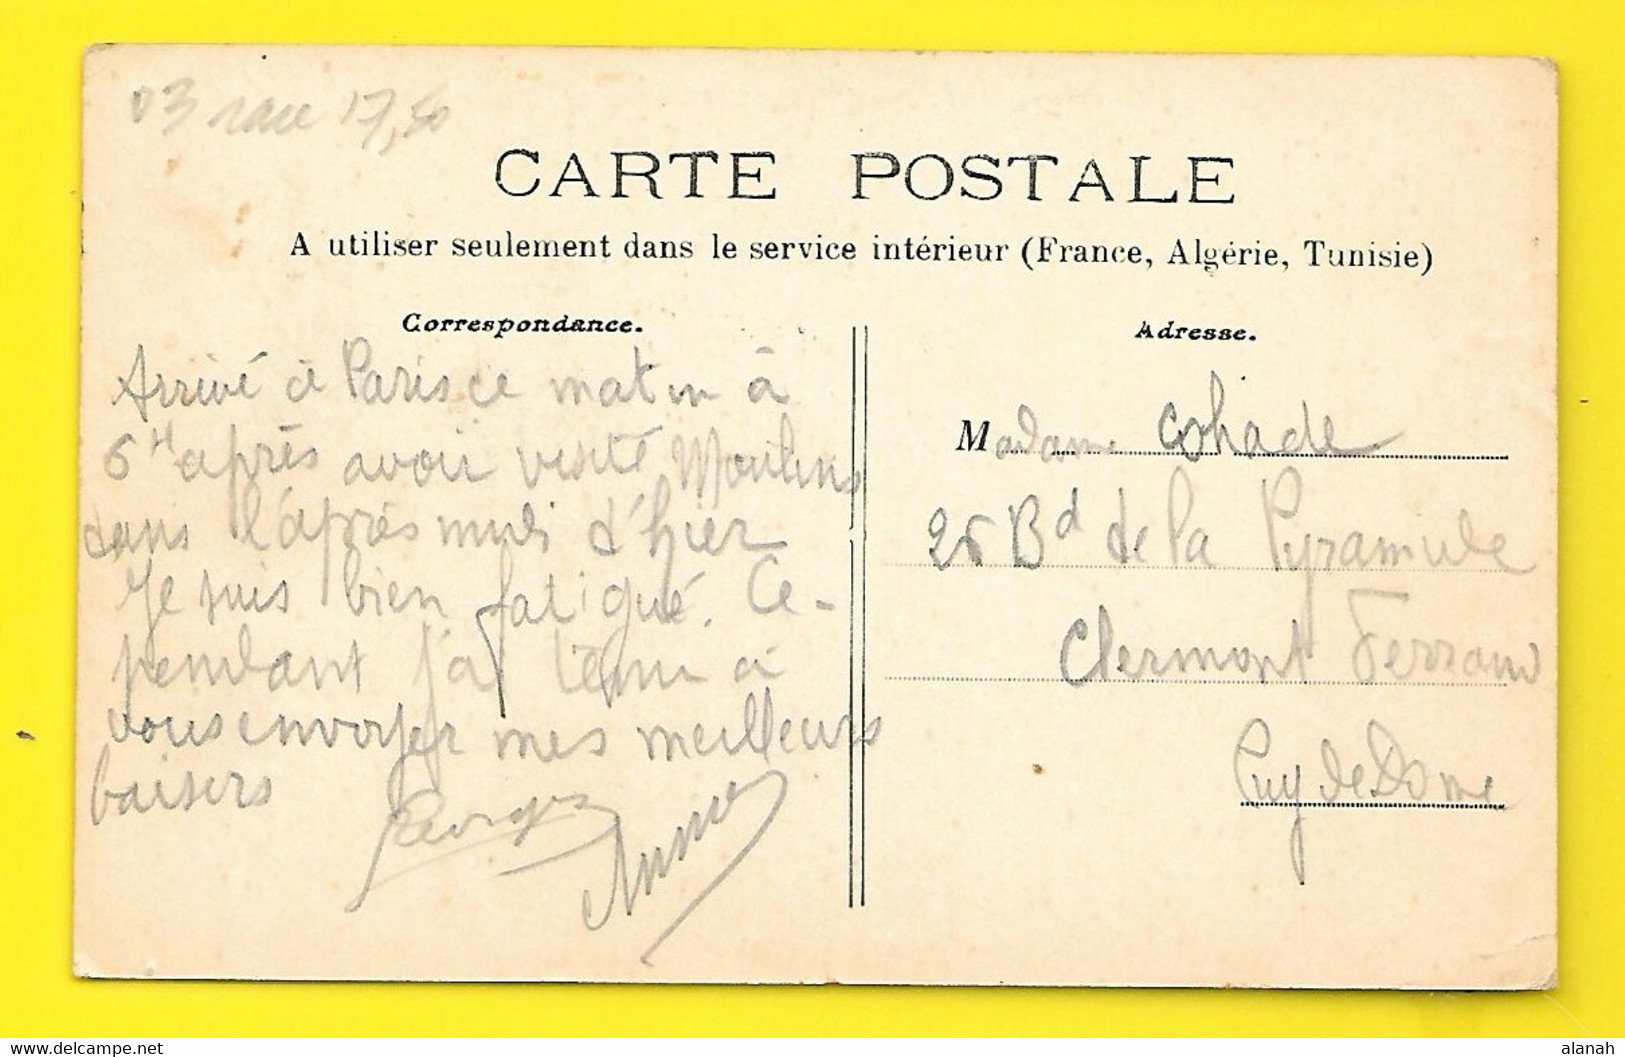 03 rare 17,50
CARTE POSTALE
A utiliser seulement dans le service intérieur (France, Algérie, Tunisie)
Correspondance.
Arrivé à Paris ce matin à
5 H après avoir visité Moulins
dans l'après midi d'hier
Je suis bien fatigué. Ce-
pendant j'ai tenu à
vous envoyer mes meilleurs
baisers
Georges
Adresse.
Madame Cohade
26 Bd de la Pyramide
Clermont Ferrand
Puy de Dome
Delcampe.net
alanah